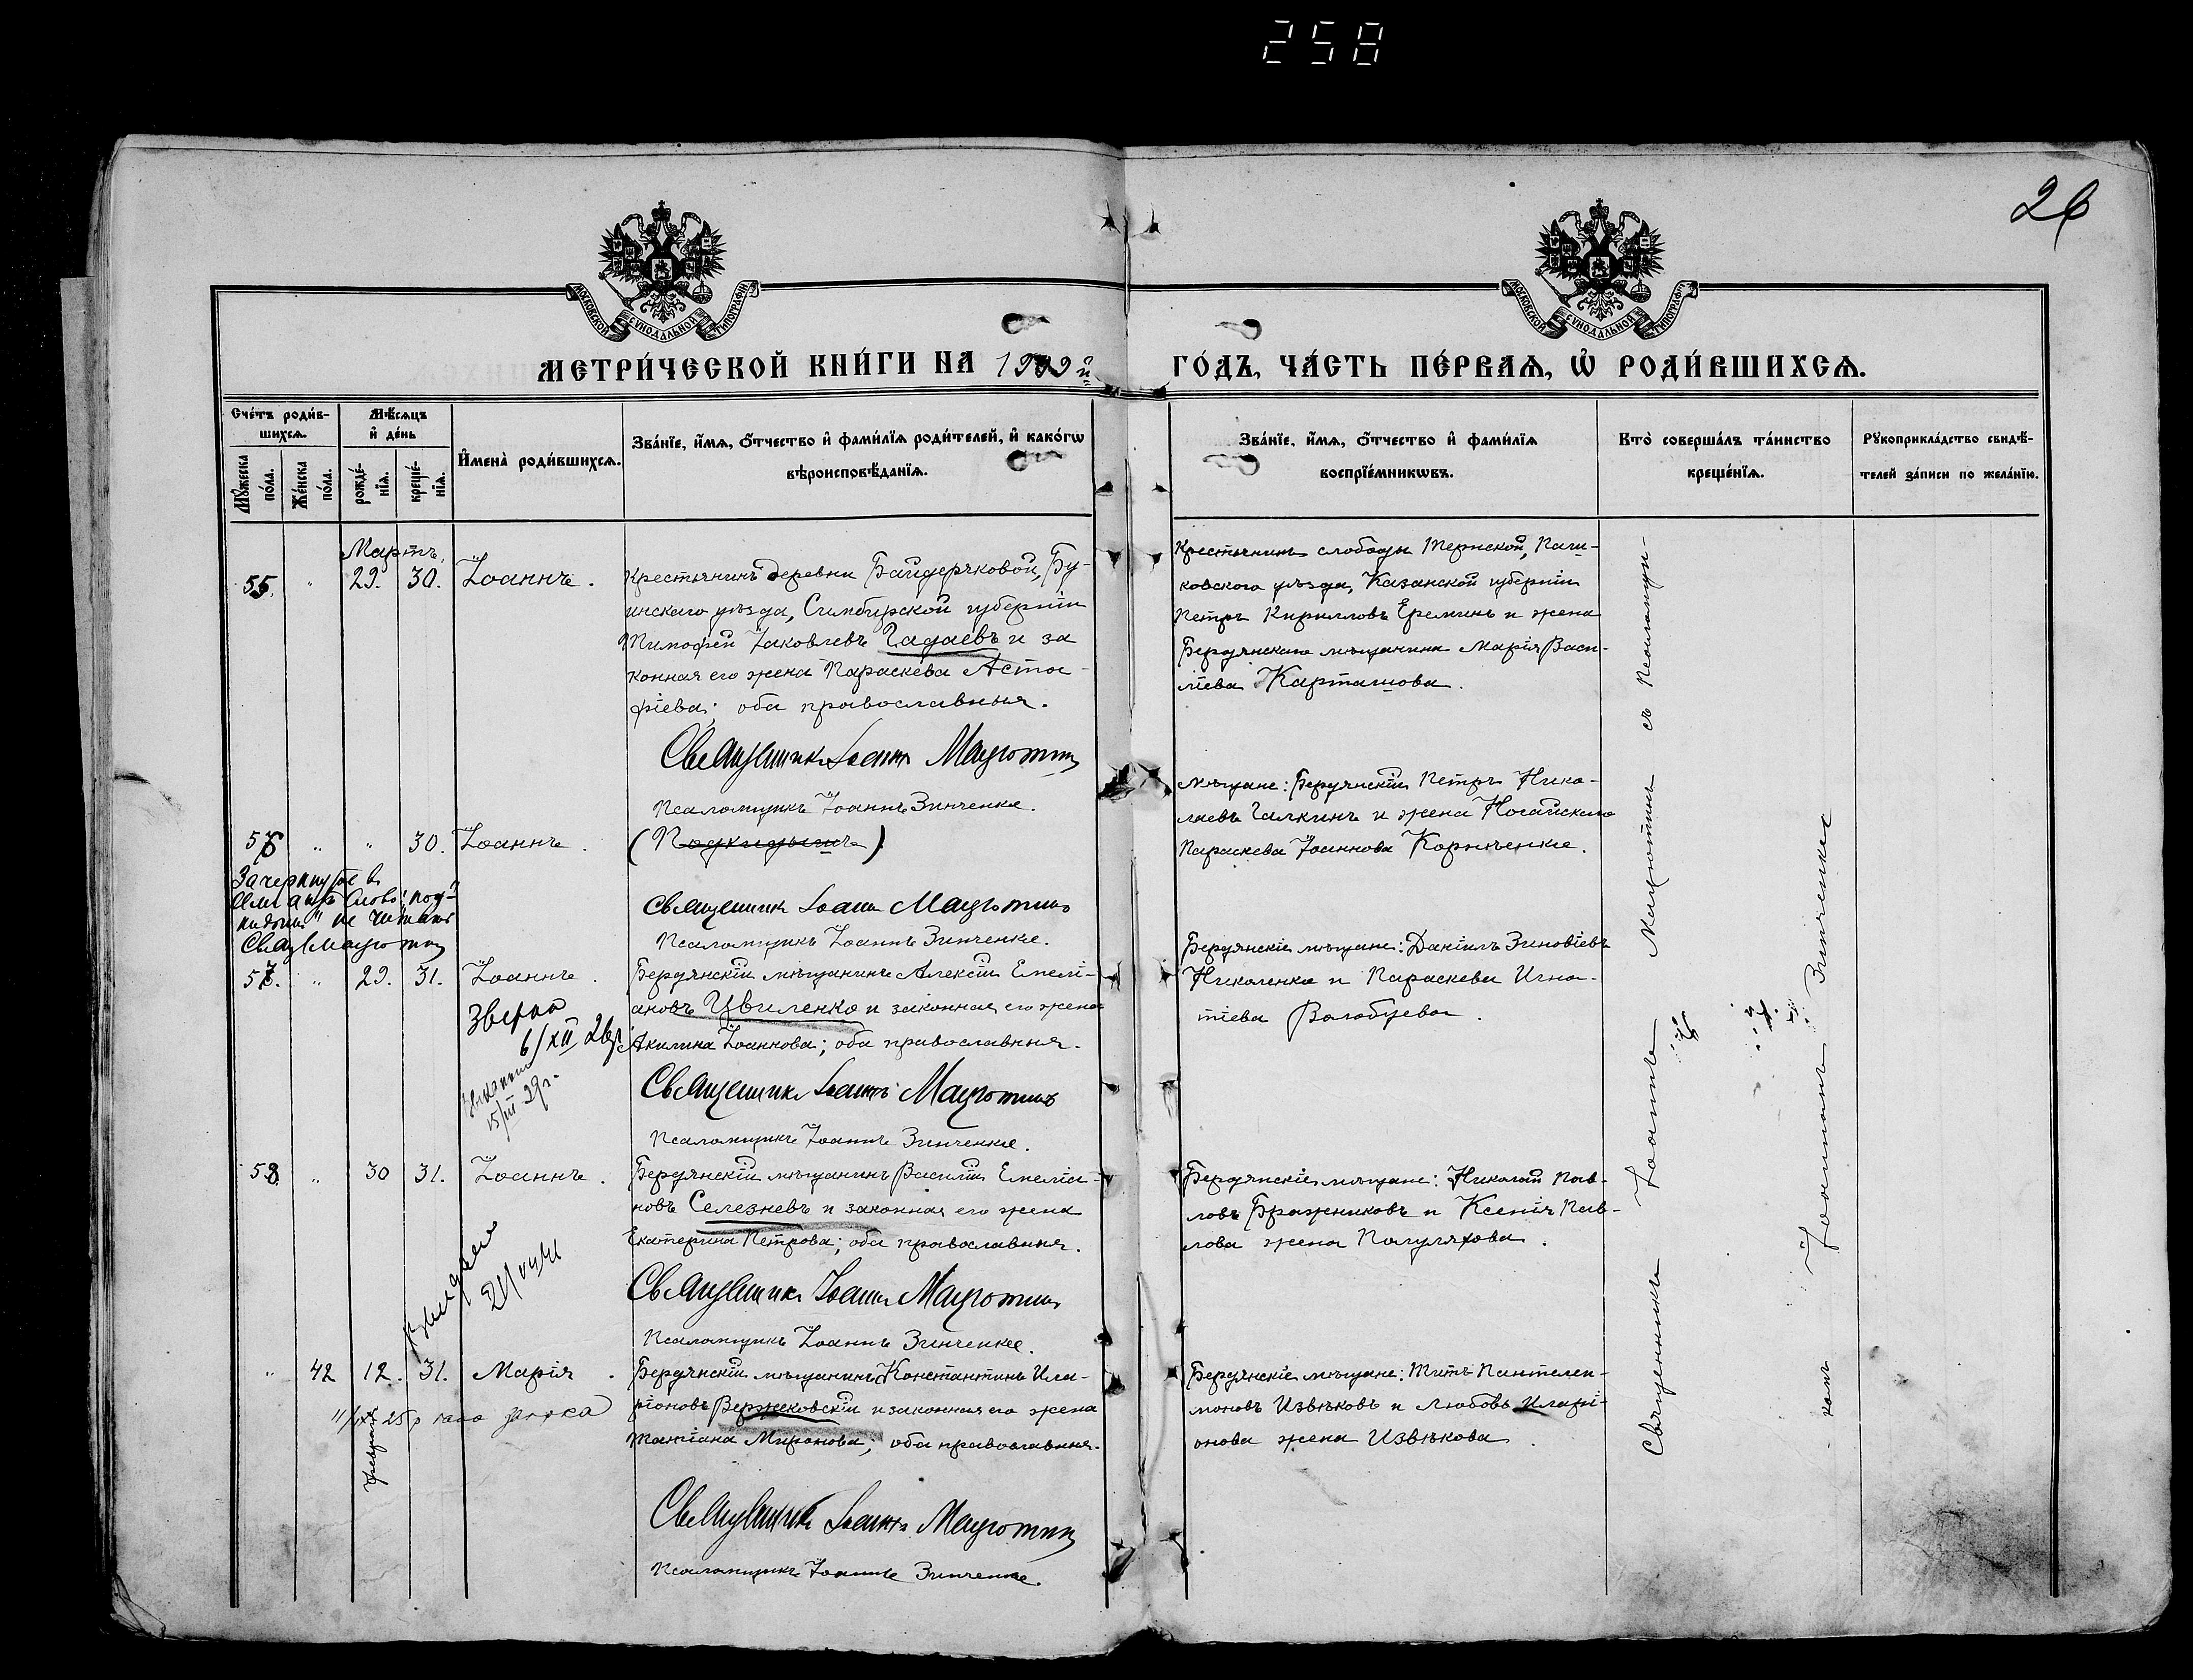 258
26
МОСКОВСКОЙ СѴНОДАЛЬНОЙ ТИПОГРАФІИ
МОСКОВСКОЙ СѴНОДАЛЬНОЙ ТИПОГРАФІИ
МЕТРИ́ЧЕСКОЙ КНИ́ГИ НА 1909й ГО́ДЪ, ЧА́СТЬ ПЕ́РВАѦ, Ѽ РОДИ́ВШИХСѦ.
Сче́тъ роди́в-
шихсѧ.
Мꙋ́жеска по́ла.
Же́нска по́ла.
Мѣ́сѧцъ
и҆ де́нь
рожде́-
нїѧ.
креще́-
нїѧ.
И҆мена̀ роди́вшихсѧ.
Зва́нїе, и҆́мѧ, ѻ҆́тчество и҆ фами́лїѧ роди́телей, и҆ како́гѡ
вѣроисповѣ́данїѧ.
Зва́нїе, и҆́мѧ, ѻ҆́тчество и҆ фами́лїѧ
воспрїе́мникѡвъ.
Кто̀ соверша́лъ та́инство
креще́нїѧ.
Рꙋкоприкла́дство свидѣ́-
телей за́писи по жела́нїю.
Мартъ
55. " 29. 30. Іоаннъ.
Крестьянинъ деревни Байдеряковой, Бу-
инскаго уѣзда, Симбирской губерніи
Тимофей Іаковлевъ Чадаевъ и за
конная его жена Параскева Аста-
фіева; оба православныя.
Священникъ Іоаннъ Мацютинъ
Псаломщикъ Іоаннъ Зинченко.
Крестьянинъ слободы
ковскаго уѣзда, Казанской губерніи
Петръ Кирилловъ Ереминъ и жена
Бердянскаго мѣщанина Марія Васи-
ліева Карташова.
56 " " 30. Іоаннъ.
(Подкидышъ)
Зачеркнутое
слово: "под-
кидышъ" не читать
Свящ Мацютинъ
Священникъ Іоаннъ Мацютинъ
Псаломщикъ Іоаннъ Зинченко.
Мѣщане: Бердянскій Петръ Нико-
лаевъ Галкинъ и жена Ногайскаго
Параскева Іоаннова Корниенко.
57. " 29. 31. Іоаннъ.
6/XII 26г
15/III 29г.
Бердянскій мѣщанинъ Алексій Емелі-
ановъ Цвиленко и законная его жена
Акилина Іоаннова; оба православныя.
Священникъ Іоаннъ Мацютинъ
Псаломщикъ Іоаннъ Зинченко.
Бердянскіе мѣщане: Даніилъ Зиновіевъ
Николенко и Параскева Игна-
тіева Воробуева.
58. " 30 31. Іоаннъ.
Бердянскій мѣщанинъ Василій Емеліа-
новъ Селезневъ и законная его жена
Екатерина Петрова; оба православныя.
Священникъ Іоаннъ Мацютинъ
Псаломщикъ Іоаннъ Зинченко.
Бердянскіе мѣщане: Николай Пав-
ловъ Бражниковъ и Ксенія Пав-
лова жена Полуляхова.
" 42 12. 31. Марія.
февраля
Бердянскій мѣщанинъ Константинъ Ила-
ріоновъ Вержековскій и законная его жена
Татіана Миронова; оба православныя.
Священникъ Іоаннъ Мацютинъ
Псаломщикъ Іоаннъ Зинченко.
Бердянскіе мѣщане: Титъ Пантелеи-
моновъ Извѣковъ и Любовь Иларі-
онова жена Извѣкова.
Священникъ Іоаннъ Мацютинъ съ псаломщи-
комъ Іоанномъ Зинченко